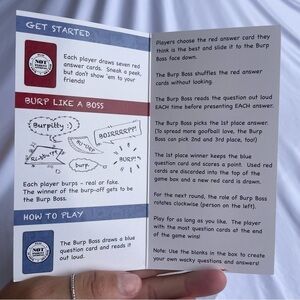 GET STARTED
Each player draws seven red
answer cards. Sneak a peek,
but don't show 'em to your
friends!
BURP LIKE A BOSS
Burpitty :)
BOIRRRRPP!
BURP!
burp
Each player burps - real or fake.
The winner of the burp-off gets to be
the Burp Boss.
HOW TO PLAY
The Burp Boss draws a blue
question card and reads it
out loud.
Players choose the red answer card they
think is the best and slide it to the Burp
Boss face down.
The Burp Boss shuffles the red answer
cards without looking.
The Burp Boss reads the question out loud
EACH time before presenting EACH answer.
The Burp Boss picks the 1st place answer.
(To spread more goofball love, the Burp
Boss can pick 2nd and 3rd place, too!)
The 1st place winner keeps the blue
question card and scores a point. Used red
cards are discarded into the top of the
game box and a new red card is drawn.
For the next round, the role of Burp Boss
rotates clockwise (person on the left).
Play for as long as you like. The player
with the most question cards at the end
of the game wins!
Note: Use the blanks in the box to create
your own wacky questions and answers!